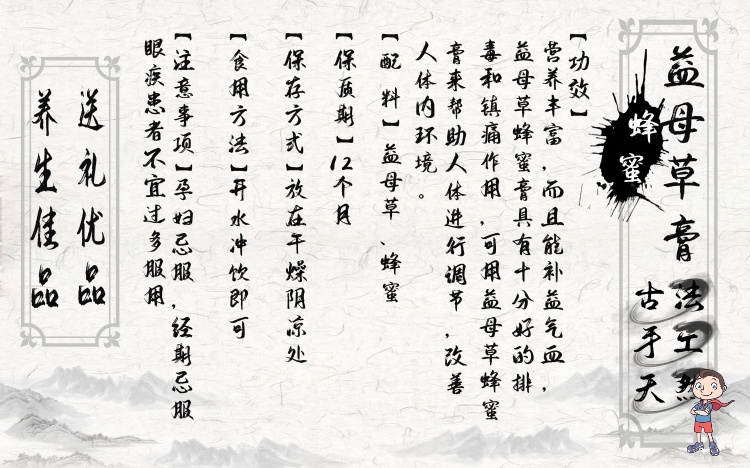 益母草膏
蜂蜜
古法
手工
天然
【功效】
营养丰富，而且能补益气血，
益母草蜂蜜膏具有十分好的排
毒和镇痛作用，可用益母草蜂蜜
膏来帮助人体进行调节，改善
人体内环境。
【配料】益母草、蜂蜜
【保质期】12个月
【保存方式】放在干燥阴凉处
【食用方法】开水冲饮即可
【注意事项】孕妇忌服，经期忌服
眼疾患者不宜过多服用
送礼优品
养生佳品